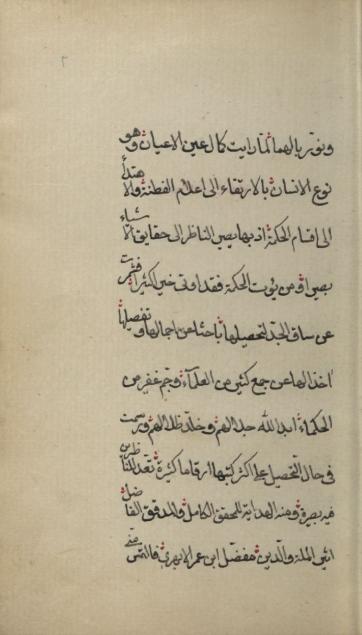 وبفوّر بالهما لمّا رايت كمال عين الاعيان وهو
نوع الانسان بالارتقاء الى اعلام الفطنة والاهتداء
الى اقسام الحكمة اذ بها يصير الناظر الى حقايق الاشياء
بصيرا ومن يؤت الحكمة فقد اوتى خيرا كثيرا فشمرت
عن ساق الجدّ لتحصيلها باحثا عن اجمالها وتفصيلها
اخذا لها عن جمع كثير من العلماء وجمّ غفير من
الحكماء ابد الله جلالهم وخلّد ظلالهم ورسمت
فى حال التحصيل على اكثر كتبها ارقاما كثيرة تفيد للناظرين
فيه بصيرة ومنه الهداية للمحقق الكامل والمدقق الفاضل
اثير الملة والدين مفضل ابن عمر الابهرى فالتمس منّى